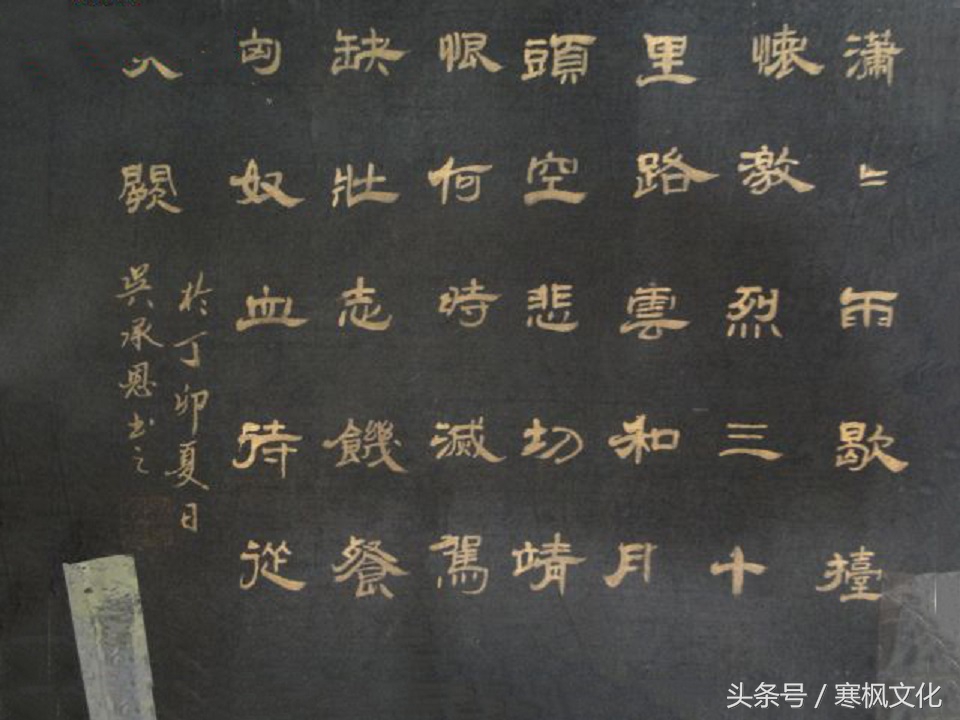 瀟〻雨歇擡
懷激烈三十
里路雲和月
頭空悲切靖
恨何時滅駕
缺壯志饑餐
匈奴血待從
入闕
於丁卯夏日
吳承恩书之
头条号 / 寒枫文化